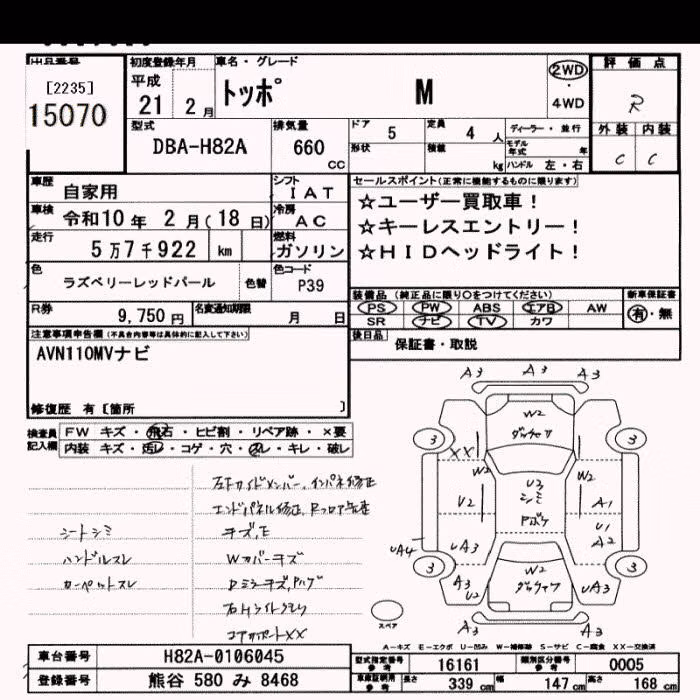 出品番号
[2235]
15070
初度登録年月
平成
21 2 月
車名・グレード
トッポ M
2WD
・
4WD
評 価 点
R
外 装 内 装
C C
型式
DBA-H82A
排気量
660
CC
ドア 5
定員 4 人
ディーラー・並行
形状
積載 kg
モデル年式 年
ハンドル 左・右
車歴 自家用
シフト IAT
車検 令和10 年 2 月(18 日)
冷房 AC
走行 5万7千922 km
燃料 ガソリン
色 ラズベリーレッドパール
色替
色コード P39
R券 9,750 円
名変通知期限 月 日
セールスポイント(正常に機能するものに限ります)
☆ユーザー買取車!
☆キーレスエントリー!
☆HIDヘッドライト!
装備品(純正品に限り○をつけてください)
PS PW ABS エアB AW
SR ナビ TV カワ
新車保証書
有・無
後日品 保証書・取説
注意事項申告欄(不具合内容等は具体的に記入して下さい)
AVN110MVナビ
修復歴 有[箇所 ]
検査員
記入欄
FW キズ・飛石・ヒビ割・リペア跡・×要
内装 キズ・汚レ・コゲ・穴・スレ・キレ・破レ
インパネ修正
エンドパネル修正
シートシミ
キズ、E
ハンドルスレ
Wカバーキズ
カーペットスレ
コアサポートXX
A3 A3 A3
W2
3 3
XX
W2 W2
U3
シミ
U2
A1
U1
A2
UA3
UA4
3 3
A3
U2
W2
UA3
A3 A3 A3
スペア
A-キズ E-エクボ U-凹み W-補修跡 S-サビ C-腐食 XX-交換済
車台番号 H82A-0106045
登録番号 熊谷 580 み 8468
型式指定番号
参考
16161
類別区分番号
参考
0005
車庫証明用
参考
長さ 339 cm 幅 147 cm 高さ 168 cm